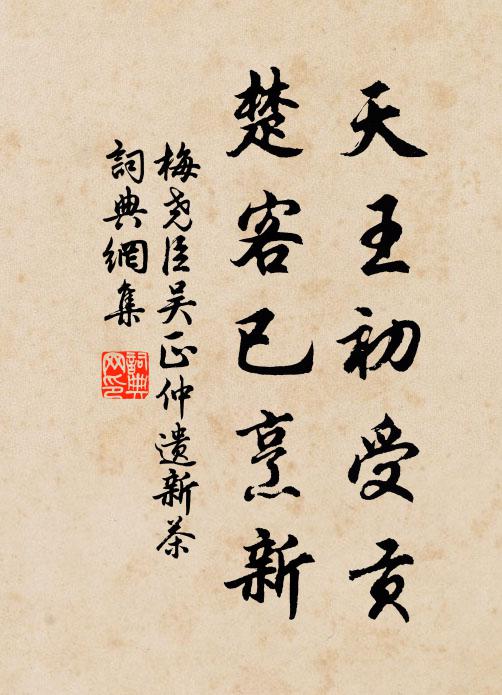 天王初受贡
楚客已烹新
梅尧臣吴正仲遗新茶
詞典網集
詞典網印